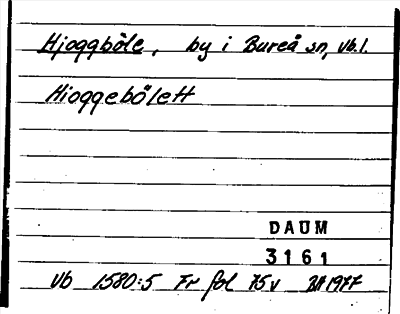 Hjoggböle, by i Bureå sn, vb.l.
Hioggebölett
DAUM
3161
Vb 1580:5 Fr fol 75v 1977